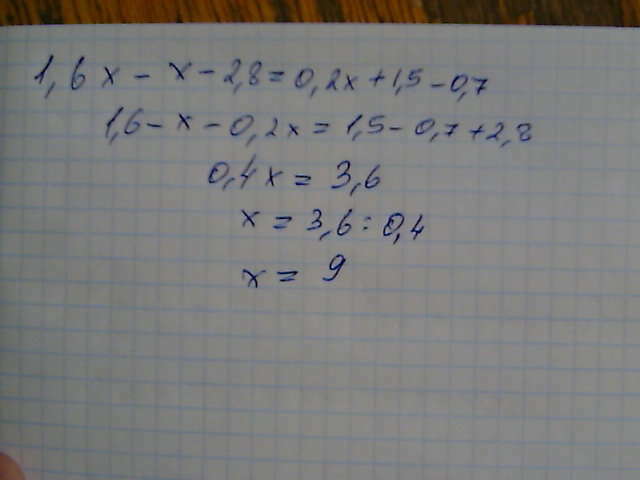 1,6x - x - 2,8 = 0,2x + 1,5 - 0,7
1,6 - x - 0,2x = 1,5 - 0,7 + 2,8
0,4x = 3,6
x = 3,6 : 0,4
x = 9